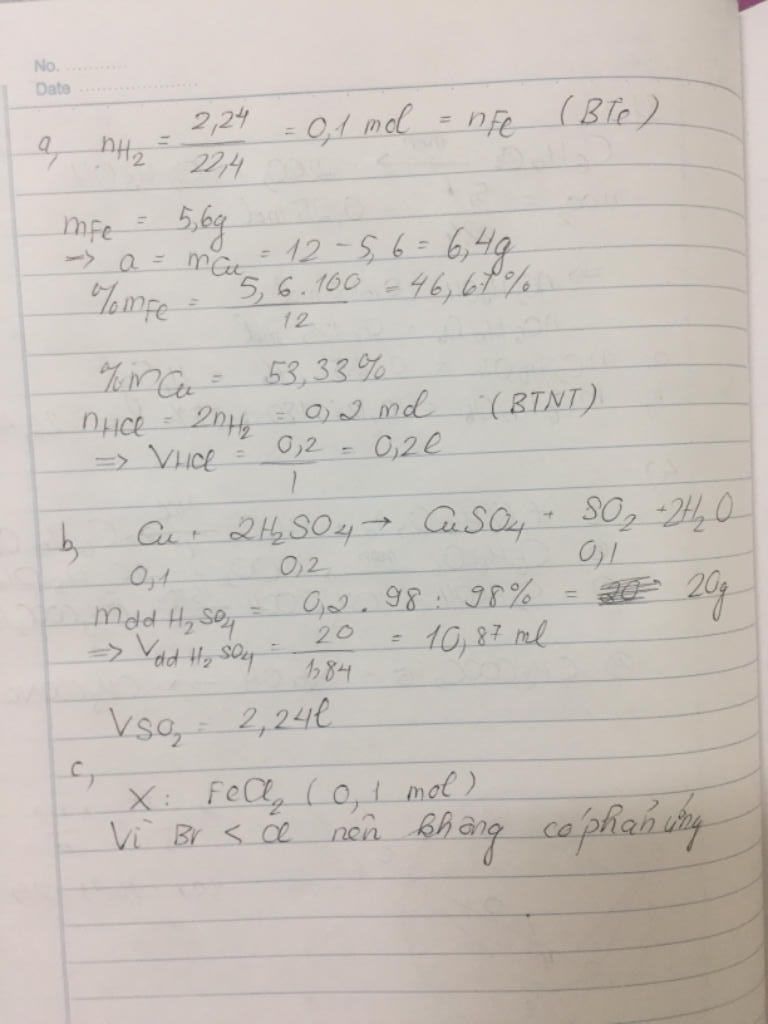 No. ............
Date ......................
a, nH2 = 2,24/22,4 = 0,1 mol = nFe (BTe)
mFe = 5,6g
-> a = mCu = 12 - 5,6 = 6,4g
%mFe = 5,6.100/12 = 46,67%
%mCu = 53,33%
nHCl = 2nH2 = 0,2 mol (BTNT)
=> VHCl = 0,2/1 = 0,2l
b, Cu + 2H2SO4 → CuSO4 + SO2 + 2H2O
0,1 0,2 0,1
mdd H2SO4 = 0,2 . 98 : 98% = 20g
=> Vdd H2SO4 = 20/1,84 = 10,87 ml
VSO2 = 2,24l
c,
X: FeCl2 (0,1 mol)
Vì Br < Cl nên không có phản ứng